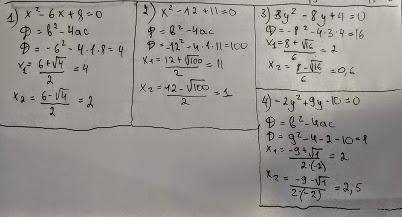 1) x² - 6x + 8 = 0
D = b² - 4ac
D = -6² - 4·1·8 = 4
x₁ = (6+√4)/2 = 4
x₂ = (6-√4)/2 = 2
2) x² - 12 + 11 = 0
D = b² - 4ac
D = -12² - 4·1·11 = 100
x₁ = (12+√100)/2 = 11
x₂ = (12-√100)/2 = 1
3) 3y² - 8y + 4 = 0
D = -8² - 4·3·4 = 16
x₁ = (8+√16)/6 = 2
x₂ = (8-√16)/6 = 0,6
4) -2y² + 9y - 10 = 0
D = b² - 4ac
D = 9² - 4 - 2 - 10 = 1
x₁ = (-9+√1)/(2·(-2)) = 2
x₂ = (-9-√1)/(2·(-2)) = 2,5